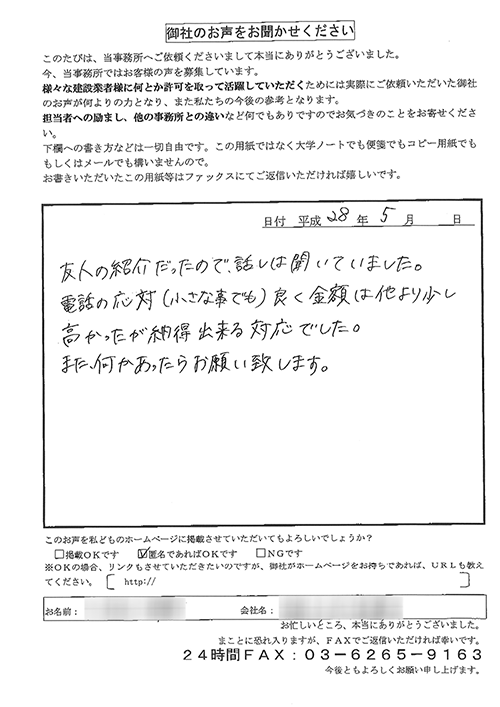 御社のお声をお聞かせください
このたびは、当事務所へご依頼くださいまして本当にありがとうございました。
今、当事務所ではお客様の声を募集しています。
様々な建設業者様に何とか許可を取って活躍していただくためには実際にご依頼いただいた御社
のお声が何よりの力となり、また私たちの今後の参考となります。
担当者への励まし、他の事務所との違いなど何でもありですのでお気づきのことをお寄せくださ
い。
下欄への書き方などは一切自由です。この用紙ではなく大学ノートでも便箋でもコピー用紙でも
もしくはメールでも構いませんので。
お書きいただいたこの用紙等はファックスにてご返信いただければ嬉しいです。
日付 平成 28 年 5 月 日
友人の紹介だったので、話しは聞いていました。
電話の応対(小さな事でも)良く金額は他より少し
高かったが納得出来る対応でした。
また、何かあったらお願い致します。
このお声を私どものホームページに掲載させていただいてもよろしいでしょうか?
□掲載OKです ☑匿名であればOKです □NGです
※OKの場合、リンクもさせていただきたいのですが、御社がホームページをお持ちであれば、URLも教え
てください。〔 http:// 〕
お名前: 会社名:
お忙しいところ、本当にありがとうございました。
まことに恐れ入りますが、FAXでご返信いただければ幸いです。
24時間FAX:03-6265-9163
今後ともよろしくお願い申し上げます。